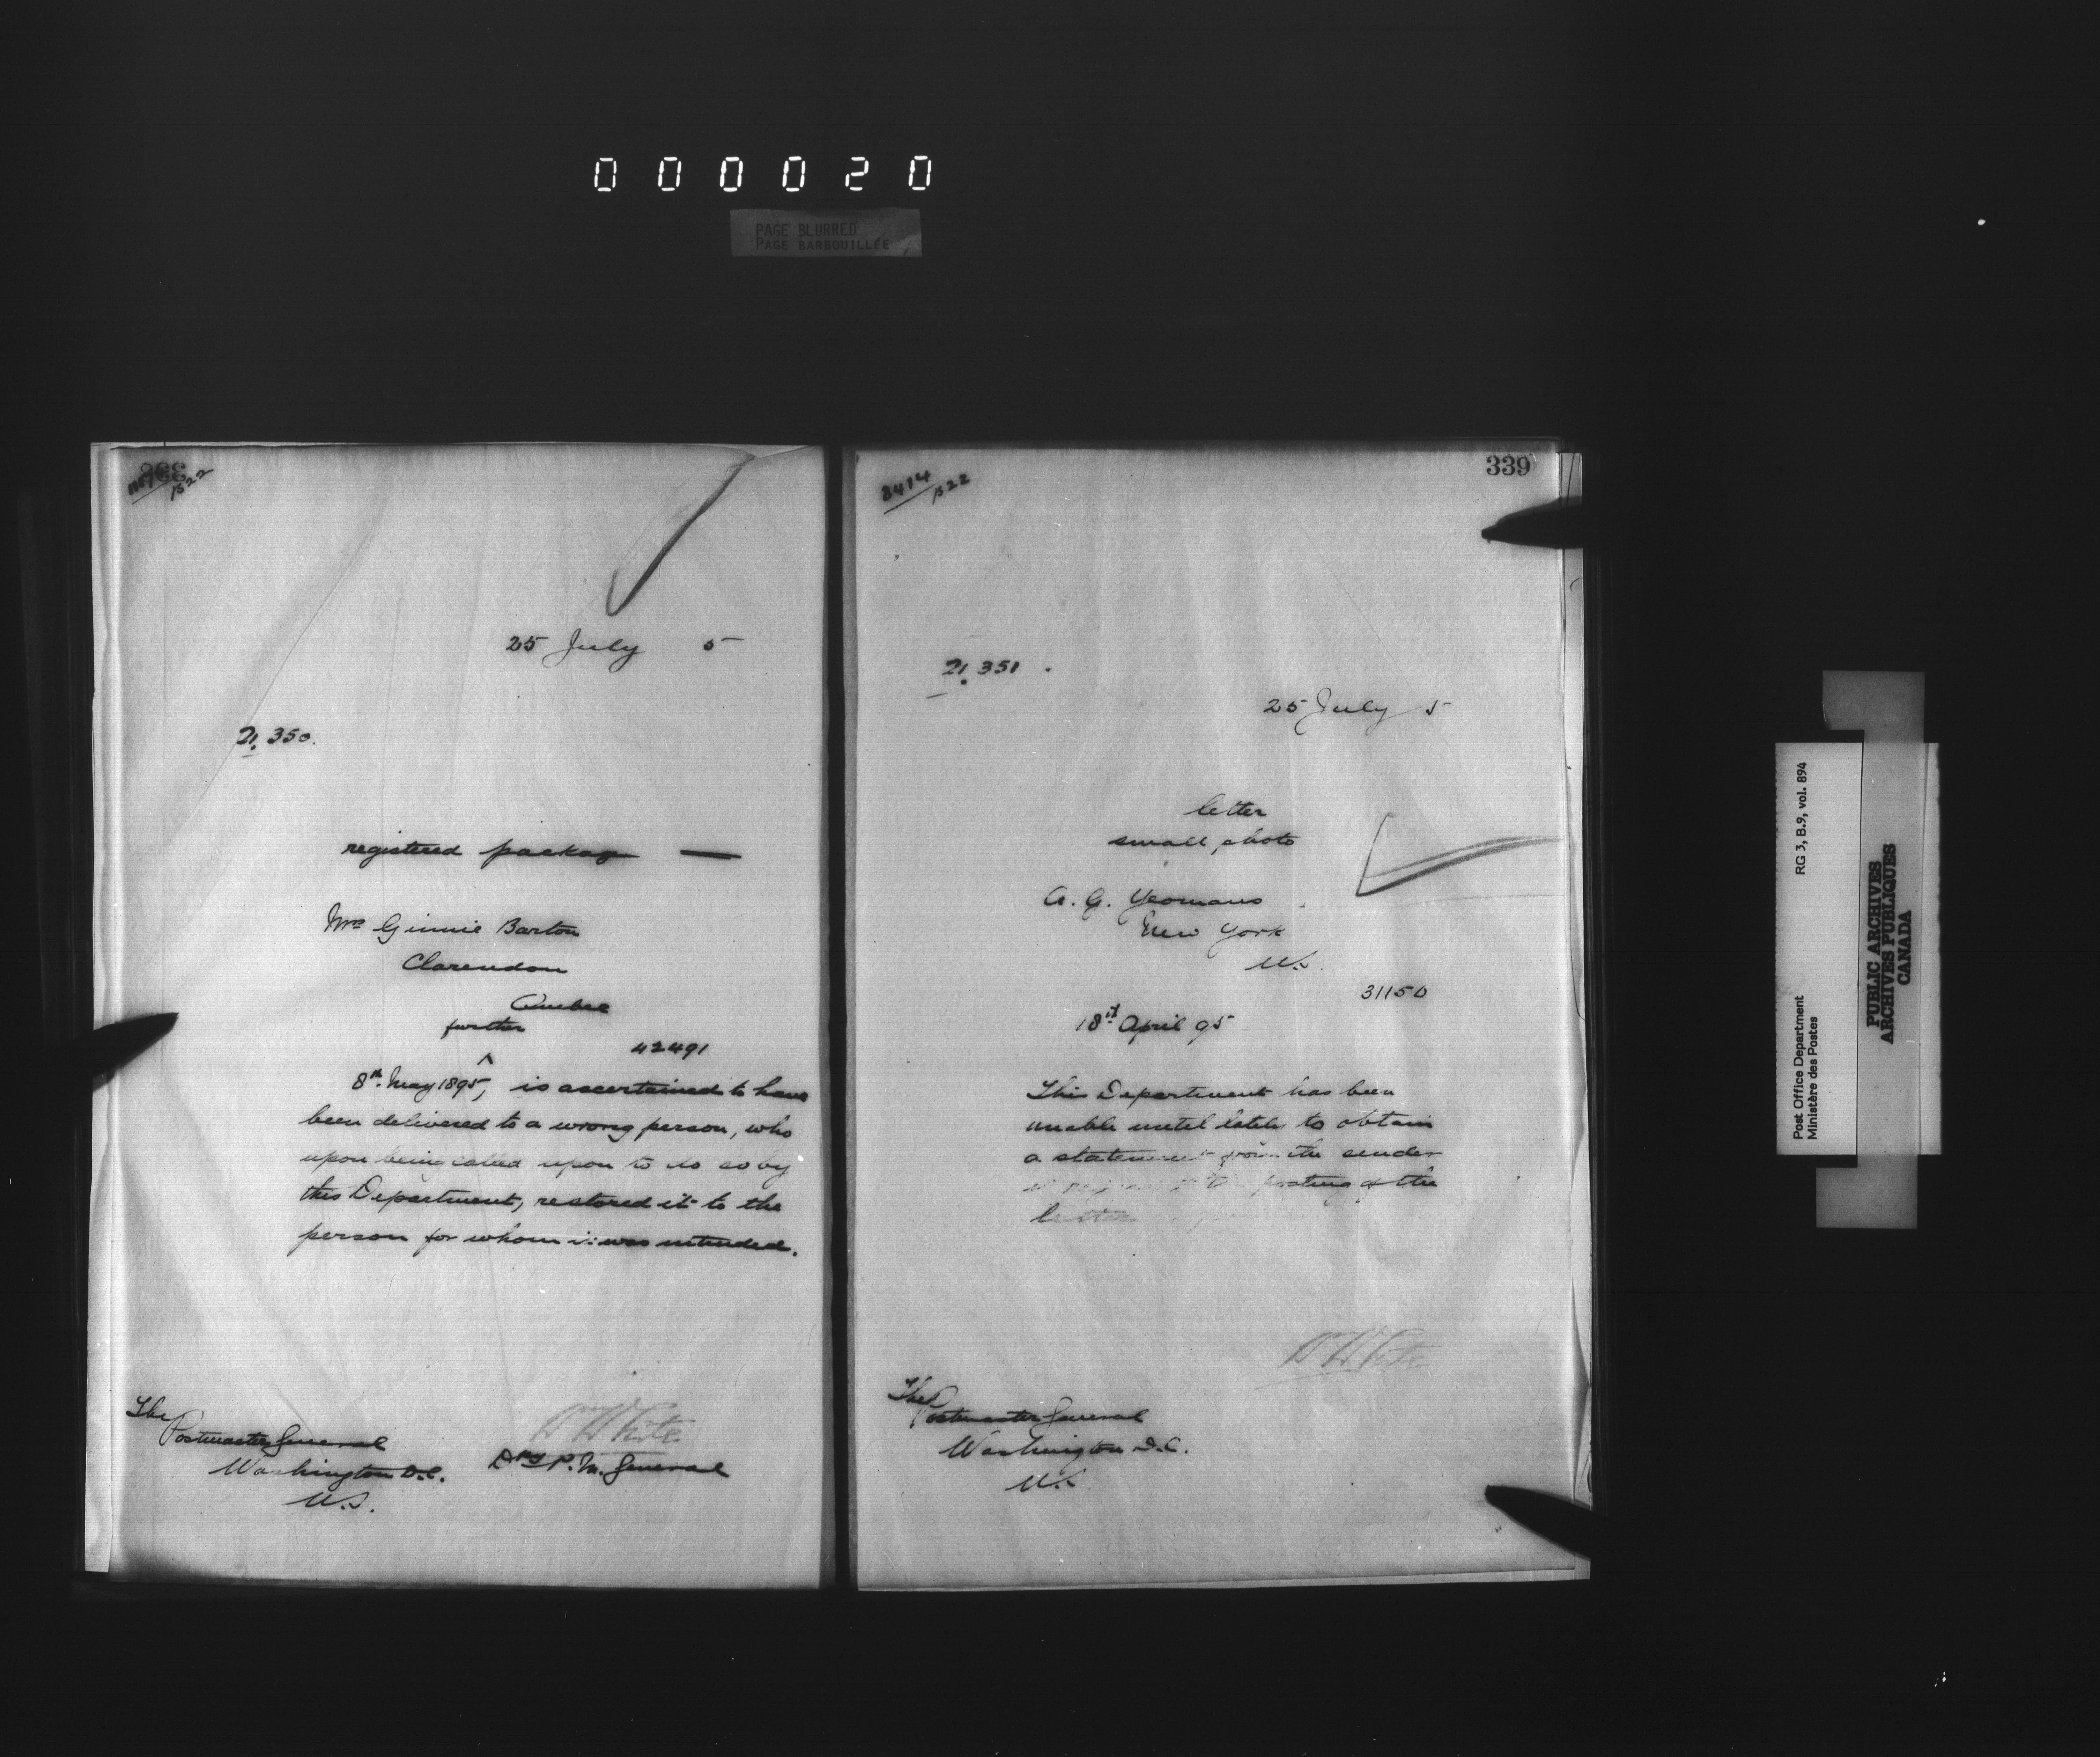 000020
PAGE BLURRED
PAGE BARBOUILLÉE
338
1522
25 July 5
21.350.
registered package —
Mrs Ginnie Barton
Clarendon
Quebec
further
42491
8th May 1895, ^ is ascertained to have
been delivered to a wrong person, who
upon being called upon to do so by
this Department, restored it to the
person for whom it was intended.
The
Postmaster General
Washington D.C.
U.S.
Wm White
Dpy P.M. General
339
8414/1522
21.351.
25 July 5
letter
small photo
A. G. Yeomans
New York
U.S.
31150
18th April 95
This Department has been
unable until lately to obtain
a statement from the sender
posting of the
letter
Wm White
The
Postmaster General
Washington D.C.
U.S.
Post Office Department RG 3, B.9, vol. 894
Ministère des Postes
PUBLIC ARCHIVES
ARCHIVES PUBLIQUES
CANADA